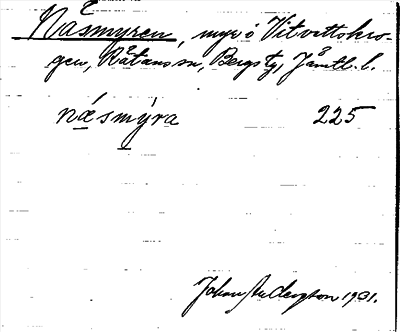 Näsmyren, myr i Vitvattskro-
gen, Rätans sn, Bergs tg, Jämtl. l.
näsmýra 225
Johan Anderzson 1931.